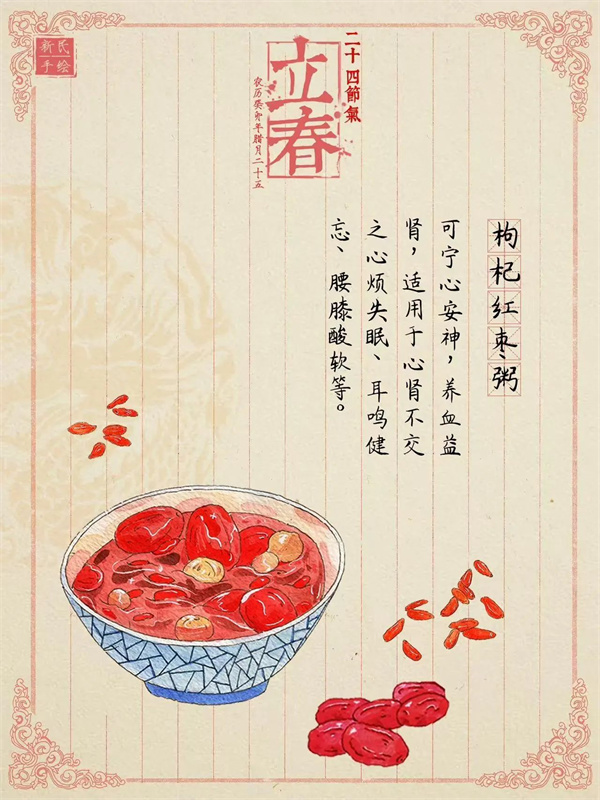 新民
手绘
二十四節氣
立春
农历癸卯年腊月二十五
枸杞红枣粥
可宁心安神，养血益
肾，适用于心肾不交
之心烦失眠、耳鸣健
忘、腰膝酸软等。